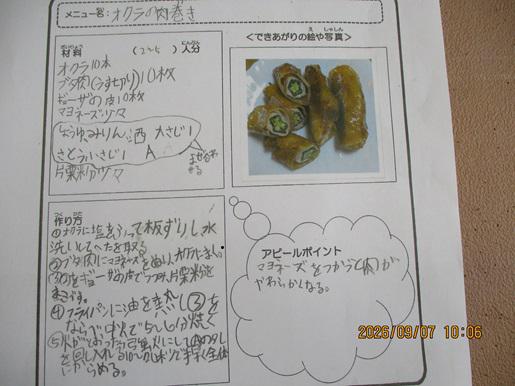 メニュー名：オクラの肉巻き
材料 （2～5）人分
オクラ10本
ブタ肉(うす切り)10枚
ギョーザの皮10枚
マヨネーズ少々
しょうゆ、みりん、酒 大さじ1
さとう小さじ1 A
まぜあわせる
片栗粉少々
＜できあがりの絵や写真＞
作り方
①オクラに塩をふって板ずりし水
洗いしてへたを取る
②ブタ肉にマヨネーズをぬり、オクラをまく。
③②をギョーザの皮でつつみ片栗粉を
まぶす。
④フライパンに油を熱し③を
ならべ中火で5～6分焼く
⑤火がとおったら弱火にしAのタレ
を回し入れる
にからめる。
アピールポイント
マヨネーズをつかうと肉が
やわらかくなる。
2026/09/07 10:06